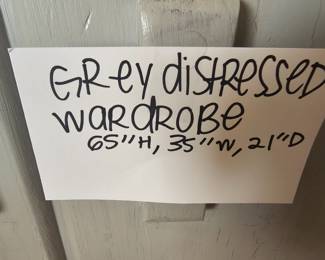 GREy distressed
wardrobe
65"H, 35"W, 21"D